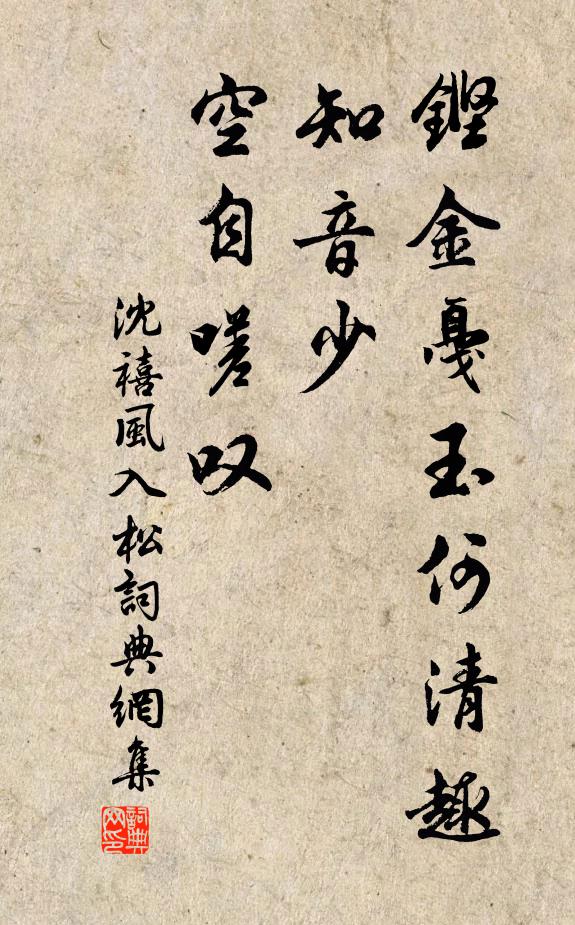 鏗金戛玉何清趣
知音少
空自嗟叹
沈禧風入松詞典網集
詞典
网印